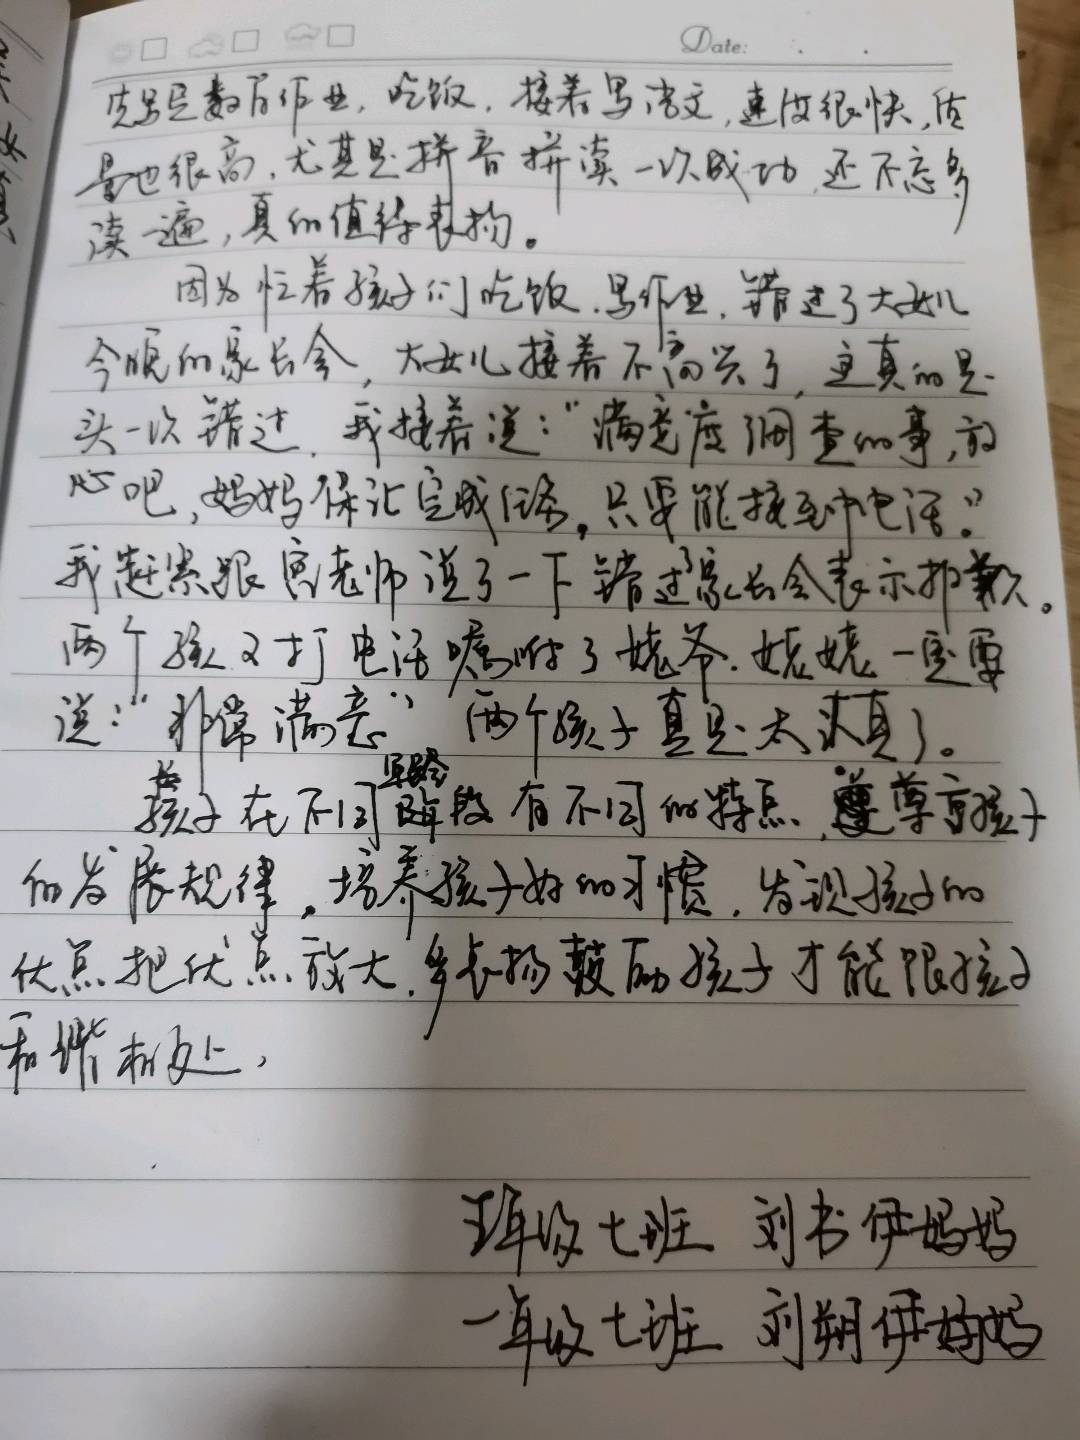 Date:
先写完数学作业，吃饭，接着写语文，速度很快，质
量也很高，尤其是拼音拼读一次成功，还不忘多
读一遍，真的值得表扬。
因为忙着孩子们吃饭，写作业，错过了大女儿
今晚的家长会，大女儿接着不高兴了，这真的是
头一次错过，我接着说：“满意度调查的事，放
心吧，妈妈保证完成任务，只要能接到电话。”
我赶紧跟老师说了一下错过了家长会表示抱歉。
两个孩又打电话嘱咐了姥爷．姥姥一定要
说：“非常满意”两个孩子真是太认真了。
孩子在不同年龄段有不同的特点，尊重孩子
的发展规律，培养孩子好的习惯，发现孩子的
优点把优点放大，多表扬鼓励孩子才能跟孩子
和谐相处，
年级七班 刘书伊妈妈
一年级七班 刘朔伊妈妈